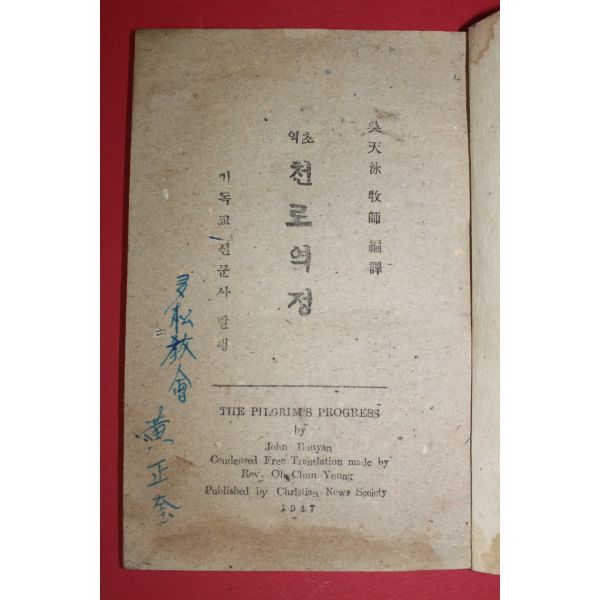 吳天泳 牧師 編譯
역초
천로역정
기독교신문사 발행
松敎會
黃正奎
THE PILGRIM'S PROGRESS
by
John Bunyan
Condensed Free Translation made by
Rev. Oh Chun Young
Published by Christian News Society
1947